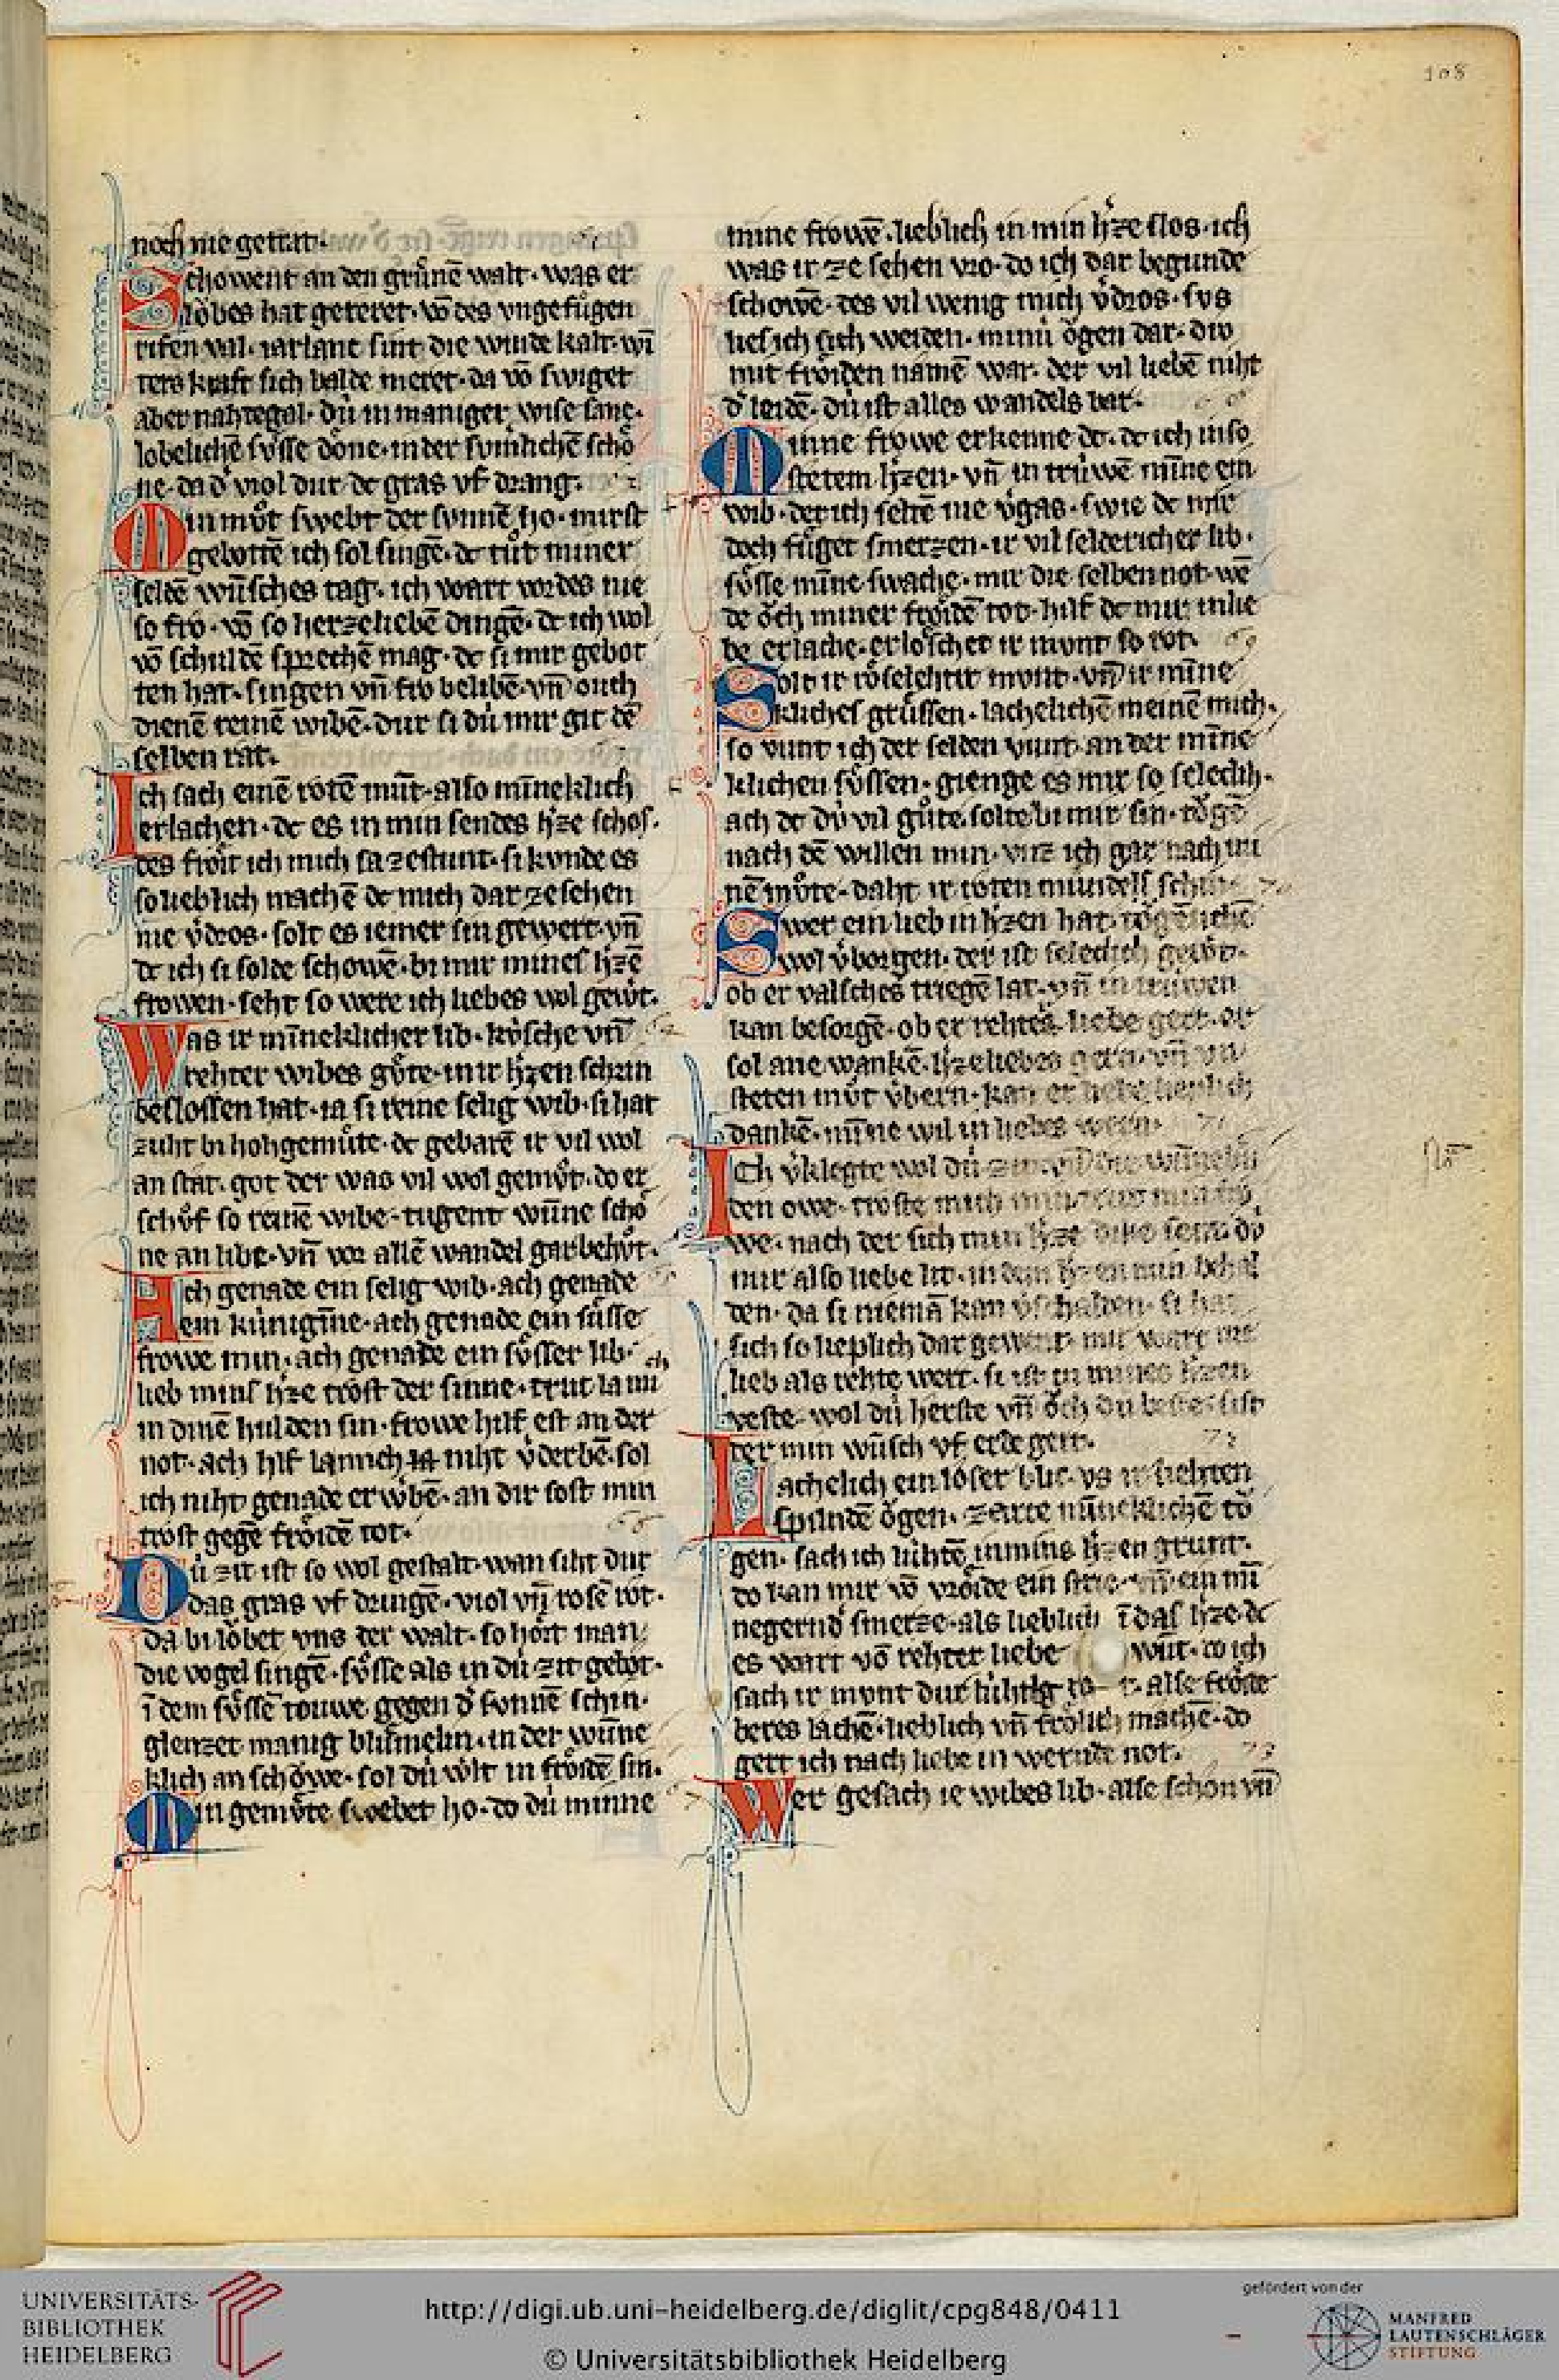 108
noch nie getrat·
Schowent an den grůnē walt· was er
lǒbes hat gereret· vō des vngefůgen
rifen val· iarlanc sint die winde kalt· wī
ters kraft sich balde meret· da vō swiget
aber nahtegal· dü in maniger wise sanc·
lobelichē sůsse dône· in der sumlichē schô
ne· da d͛ viol dur dc gras vf drang·
Min můt swebt der sunnē ho· mirst
gebottē ich sol singē· dc tůt miner
seldē wūsches tag· ich wart vor des nie
so fro· vō so herzeliebē dingē· dc ich wol
vō schuldē sprechē mag· dc si mir gebot
ten hat· singen vn̄ fro belibē· vn̄ ouch
dienē reinē wibē· dur si dü mir git dē
selben rat·
Ich sach einē rotē mūt· also mīneklich
erlachen· dc es in min sendes h͛ze schos·
des frôit ich mich sa zestunt· si kvnde es
so lieblich machē dc mich dar ze sehen
nie v͛dros· solt es iemer sin gewert· vn̄
dc ich si solde schowē· bi mir mines h͛zē
frowen· seht so were ich liebes wol gew͛t·
Was ir mīneklicher lib· kûsche vn̄
rehter wibes gůte· mir h͛zen schrin
beslossen hat· ia si reine selig wib· si hat
zuht bi hohgemůte· dc gebarē ir vil wol
an stat· got der was vil wol gemůt· do er
schůf so reinē wibe· tugent wūne schô
ne an libe· vn̄ vor allē wandel gar behůt·
Ach genade ein selig wib· ach genade
ein künigīne· ach genade ein sůsse
frowe min· ach genade ein sůsser lib· ch
lieb mins h͛ze trost der sinne· trut la mi
in dinē hulden sin· frowe hilf est an der
not· ach hilf la mich niht v͛derbē· sol
ich niht genade erw͛bē· an dir sost min
trost gegē frôidē tot·
Dü zit ist so wol gestalt· wan siht dur
das gras vf dringē· viol vn̄ rosē rot·
da bi lǒbet vns der walt· so hôrt man
die vogel singē· sůsse als in dü zit gebot·
ī dem sůssē touwe gegen d͛ sonnē schin·
glenzet manig blůmelin· in der wūne
klich an schôwe· sol dü welt in frôidē sin·
Min gemůte swebet ho· do dü minne
mine frowē· lieblich in min h͛ze slos· ich
was ir ze sehen vro· do ich dar begunde
schowē· des vil wenig mich v͛dros· sus
lies ich sich weiden· minü ǒgen dar· die
mit frôiden namē war· der vil liebē niht
d͛ leidē· dü ist alles wandels bar·
Minne frowe erkenne dc· dc ich in so
stetem h͛zen· vn̄ in trüwē mīne ein
wib· der ich seltē nie v͛gas· swie dc mir
doch fůget smerzen· ir vil seldericher lib·
sůsse mīne swache· mir die selben not· wē
de ǒch miner frôidē tot· hilf dc mir in lie
be erlache· erlôschet ir munt so rot·
Solt ir rôselehter munt· vn̄ ir mīne
kliches grůssen· lachelichē meinē mich·
so vunt ich der selden vunt· an der mīne
klichen sůssen· gienge es mir so selecli·
ach dc dü vil gůte solte bi mir sin· tǒgē
nach dē willen min· vnz ich gar nach mi
nē můte· daht ir roten mündels schin
Swer ein lieb in h͛zen hat· tǒgenlichē
wol v͛borgen· der ist seleclich gew͛t·
ob er valsches triegē lat· vn̄ in trüwen
kan besorgē· ob er rehtes liebe gert· er
sol ane wankē· h͛zeliebes gern· vn̄ vn
steten můt v͛bern· kan er liebe lieplich
dankē· mīne wil in liebes wern·
Ich v͛klegte wol dü zit· vn̄ die wūneb͛n
den owe· troste mich min trut min fro
we· nach der sich min h͛ze dike sent· dü
mir also liebe lit· in dem h͛zen min behal
den· da si niemā kan v͛schalden· si hat
sich so lieplich dar gewent· mir wart nie
lieb als rehte wert· si ist in mines h͛zen
veste· wol dü herste vn̄ ǒch dü beste· sist
der min wūsch vf erde gert·
Lachelich ein lôser blic· vs ir liehten
spilndē ǒgen· zarte mīneklichē tǒ
gen· sach ich lühtē in mins h͛zen grunt·
do kan mir vō vrôide ein stric· vn̄ ein mī
negernd͛ smerze· als lieblich ī das h͛ze· dc
es wart vō rehter liebe wūt· do ich
sach ir munt dur lühtig rot· alse frôide
beres lachē· lieblich vn̄ frôlich machē· do
gert ich nach liebe in wernde not·
Wer gesach ie wibes lib· alse schon vn̄
UNIVERSITÄTS-
BIBLIOTHEK
HEIDELBERG
http://digi.ub.uni-heidelberg.de/diglit/cpg848/0411
© Universitätsbibliothek Heidelberg
gefördert von der
MANFRED
LAUTENSCHLÄGER
STIFTUNG